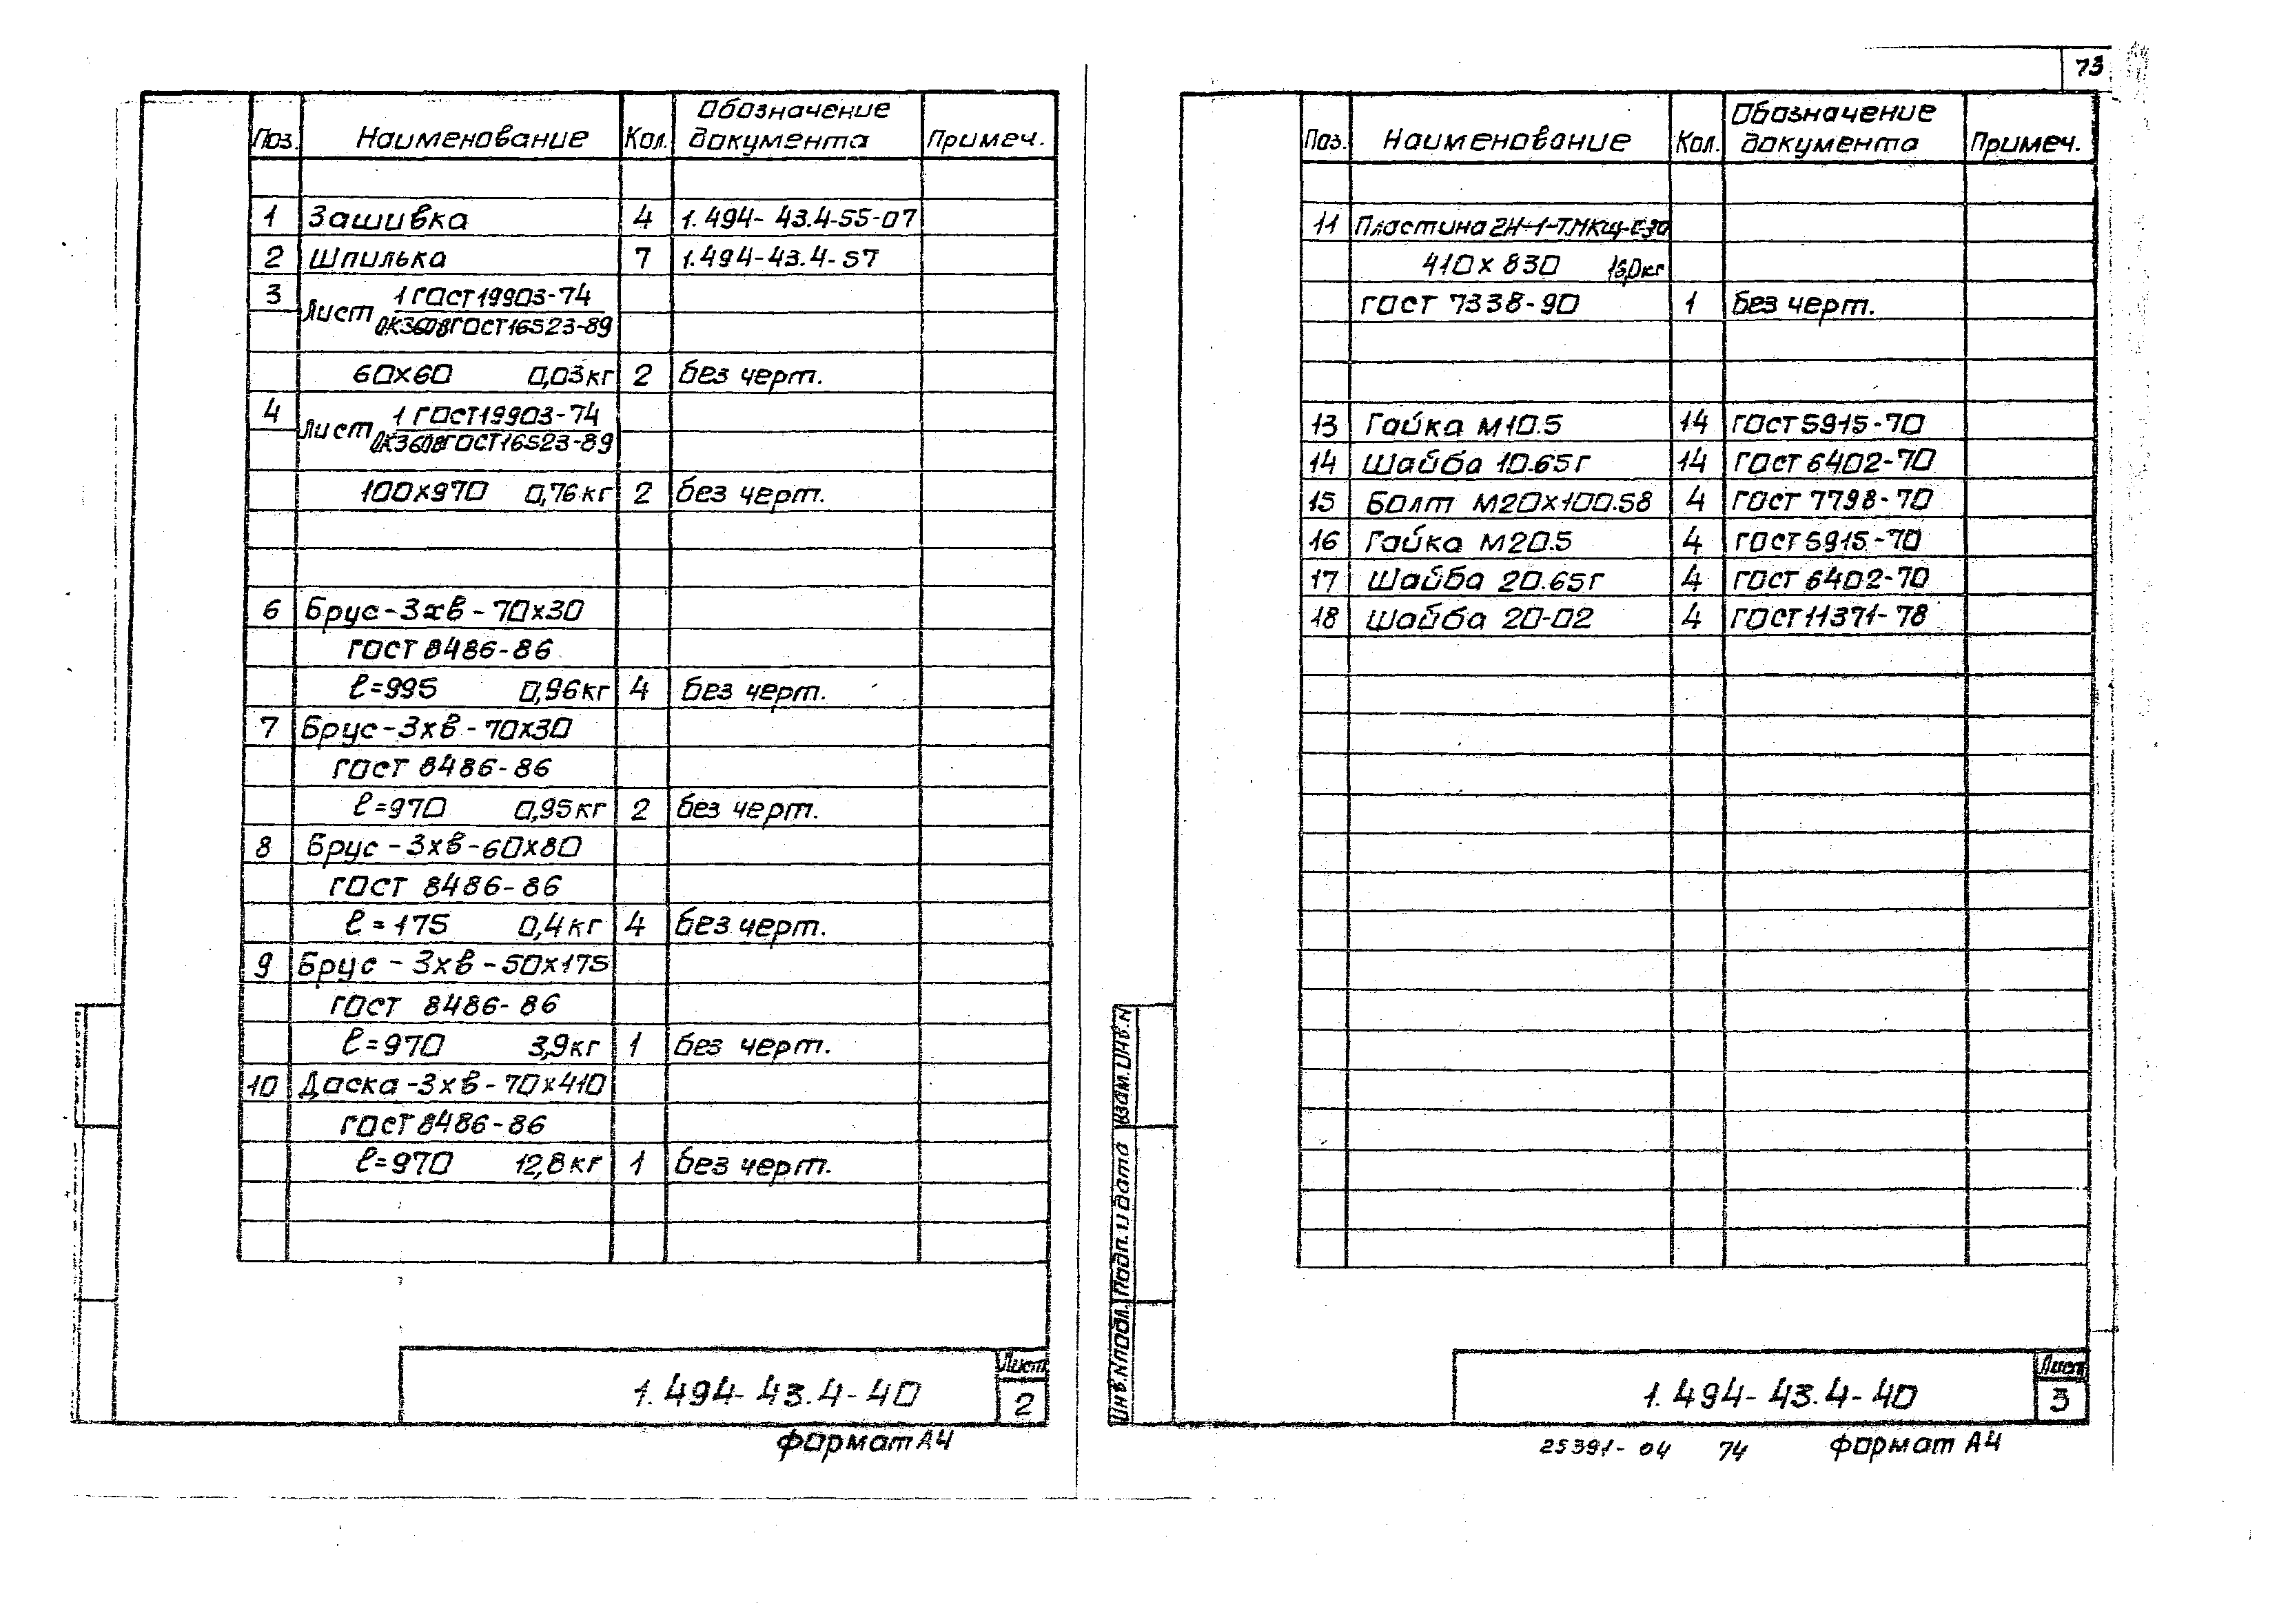 73
Поз. Наименование Кол. Обозначение документа Примеч.
1 Зашивка 4 1.494-43.4-55-07
2 Шпилька 7 1.494-43.4-57
3 Лист 1 ГОСТ 19903-74
ОК360В ГОСТ 16523-89
60х60 0,03кг 2 без черт.
4 Лист 1 ГОСТ 19903-74
ОК360В ГОСТ 16523-89
100х970 0,76кг 2 без черт.
6 Брус-3хв-70х30
ГОСТ 8486-86
ℓ=995 0,96кг 4 без черт.
7 Брус-3хв-70х30
ГОСТ 8486-86
ℓ=970 0,95кг 2 без черт.
8 Брус-3хв-60х80
ГОСТ 8486-86
ℓ=175 0,4кг 4 без черт.
9 Брус-3хв-50х175
ГОСТ 8486-86
ℓ=970 3,9кг 1 без черт.
10 Доска-3хв-70х410
ГОСТ 8486-86
ℓ=970 12,8кг 1 без черт.
1.494-43.4-40
Лист
2
формат А4
Поз. Наименование Кол. Обозначение документа Примеч.
11 Пластина
410х830
ГОСТ 7338-90 1 без черт.
13 Гайка М10.5 14 ГОСТ 5915-70
14 Шайба 10.65Г 14 ГОСТ 6402-70
15 Болт М20х100.58 4 ГОСТ 7798-70
16 Гайка М20.5 4 ГОСТ 5915-70
17 Шайба 20.65Г 4 ГОСТ 6402-70
18 Шайба 20-02 4 ГОСТ 11371-78
Взам.инв.N
Подп. и дата
Инв.N подл.
1.494-43.4-40
Лист
3
25391-04 74 формат А4